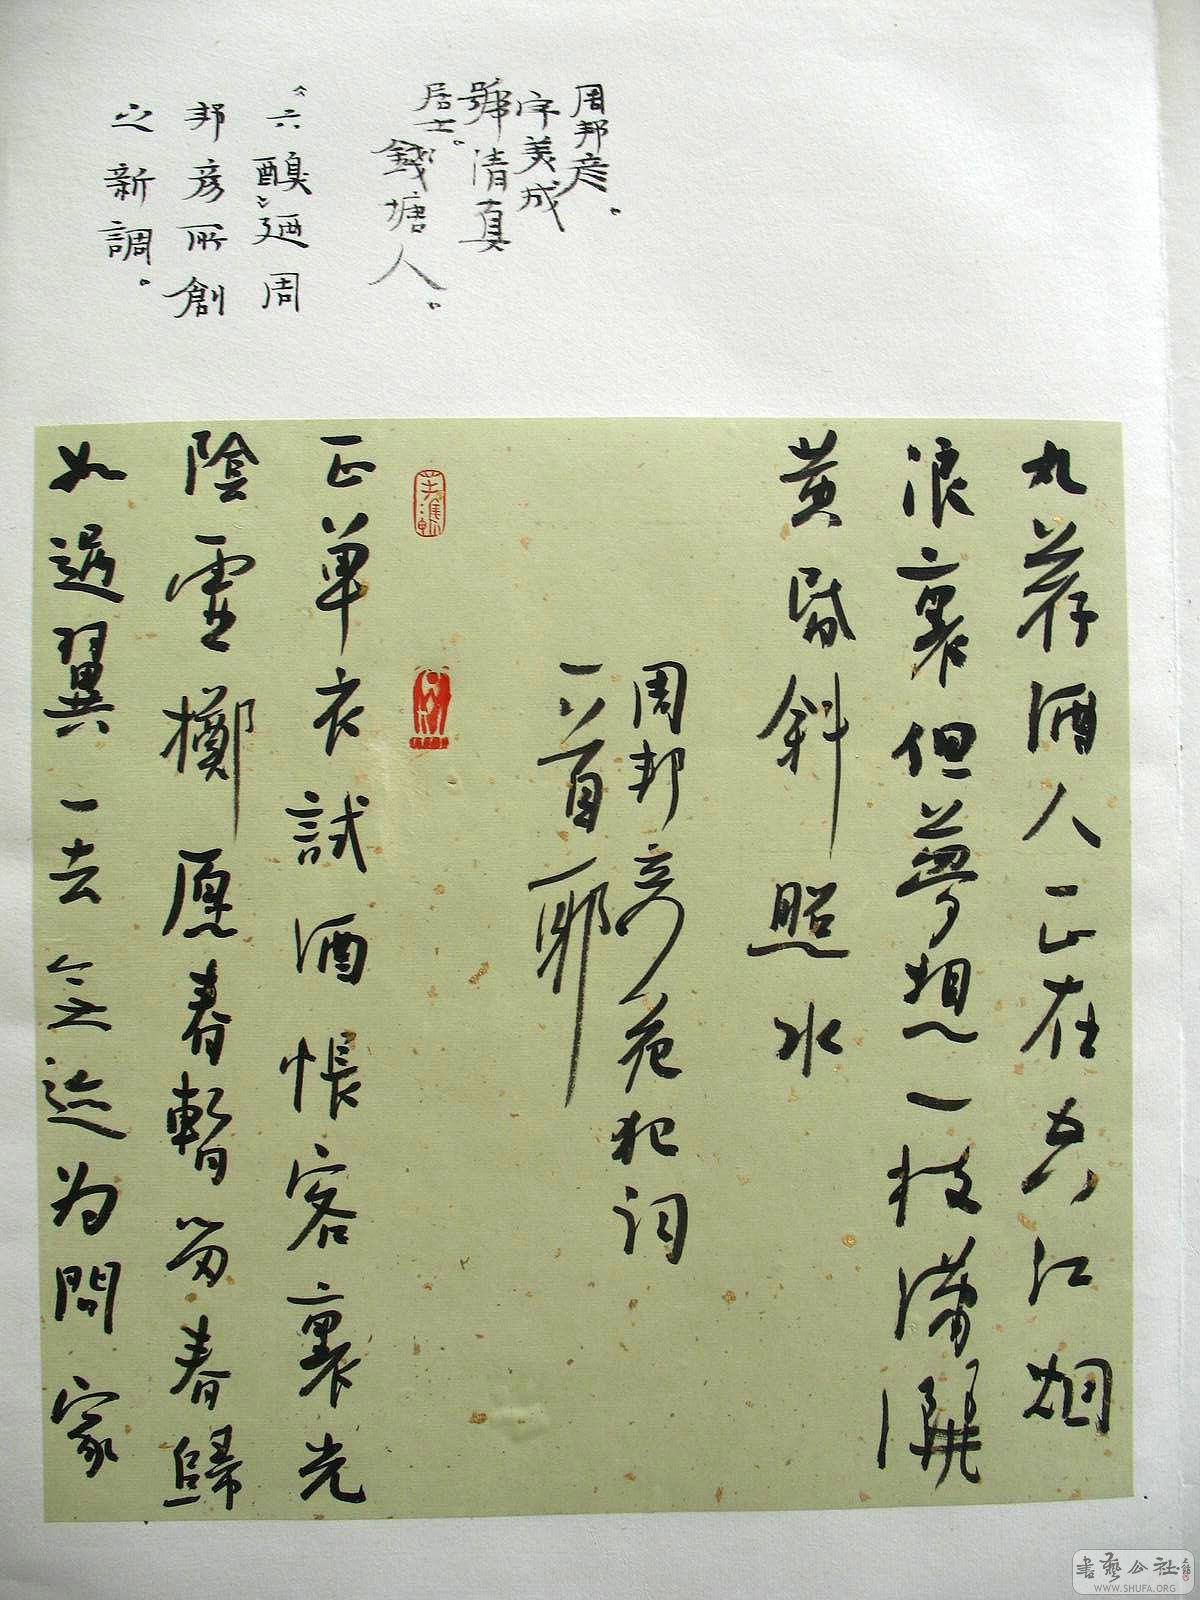 周邦彦。
字美成
號清真
居士。
錢塘人。
《六醜》廼周
邦彦所創
之新調。
丸荐酒人正在空江烟
浪裏但夢想一枝潇灑
黄昏斜照水
周邦彦花犯词
一首耶
正单衣試酒悵客裏光
陰虚擲愿春暫留春歸
如過翼一去無迹为問家
書藝公社
WWW.SHUFA.ORG